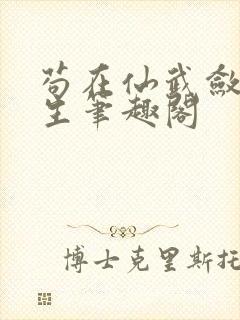 苟在仙武敛
生笔趣阁
博士克里斯托